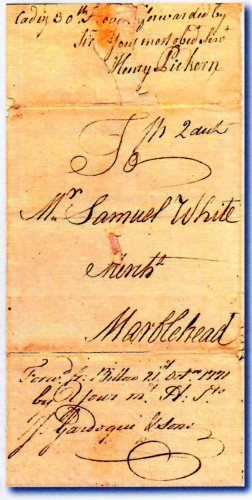 Cadiz 30th Novr forwarded by
Sir Your most obed Servt
Henry Pickorn
To
Mr. Samuel White
Marblehead
Forwd fr. Bilbao 21st Octr 1771
by Your m. H. Sts
J. Gardoqui & Sons